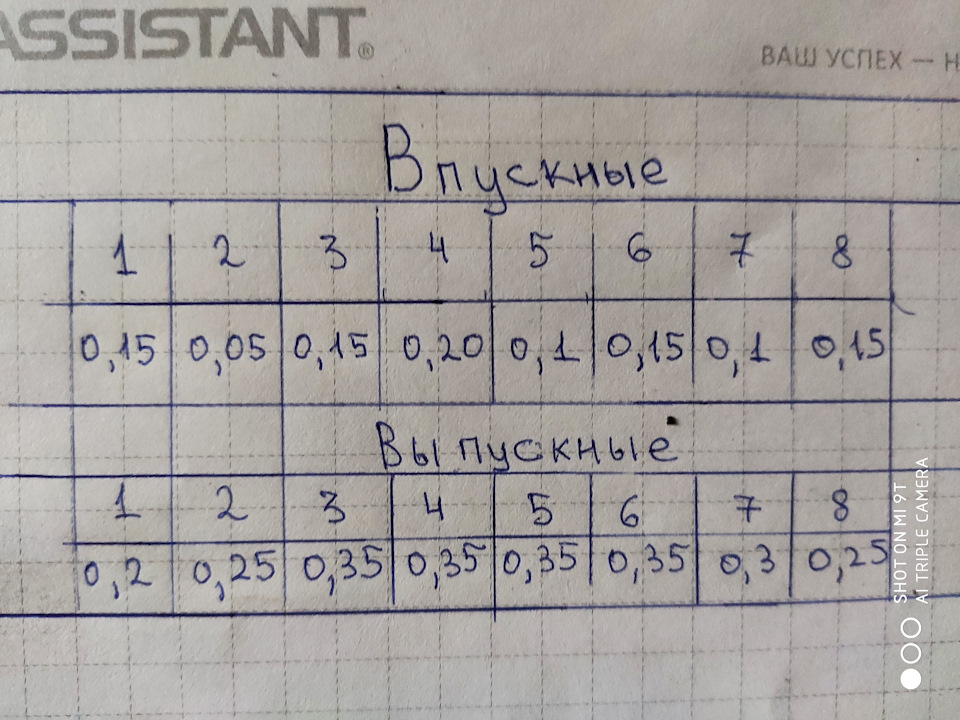 ASSISTANT®
ВАШ УСПЕХ — Н
Впускные
1 2 3 4 5 6 7 8
0,15 0,05 0,15 0,20 0,1 0,15 0,1 0,15
Выпускные
1 2 3 4 5 6 7 8
0,2 0,25 0,35 0,35 0,35 0,35 0,3 0,25
SHOT ON MI 9T
AI TRIPLE CAMERA